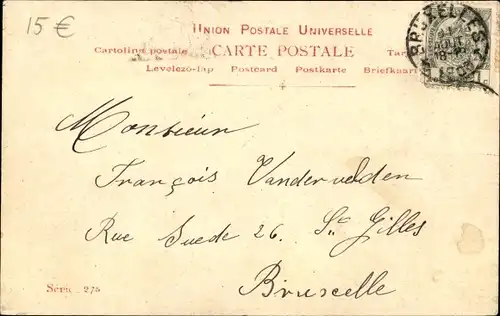 15 €
UNION POSTALE UNIVERSELLE
Cartolina postale CARTE POSTALE
Levelezö-lap Postcard Postkarte Briefkaart
BRUXELLES
Monsieur
François Vandervelden
Rue Suede 26. St Gilles
Bruxelle
Série 275